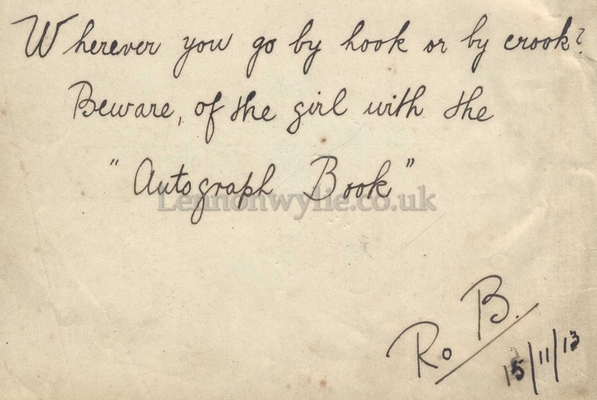 Wherever you go by hook or by crook?
Beware, of the girl with the
"Autograph Book"
Lennonwylie.co.uk
Ro B.
15/11/13